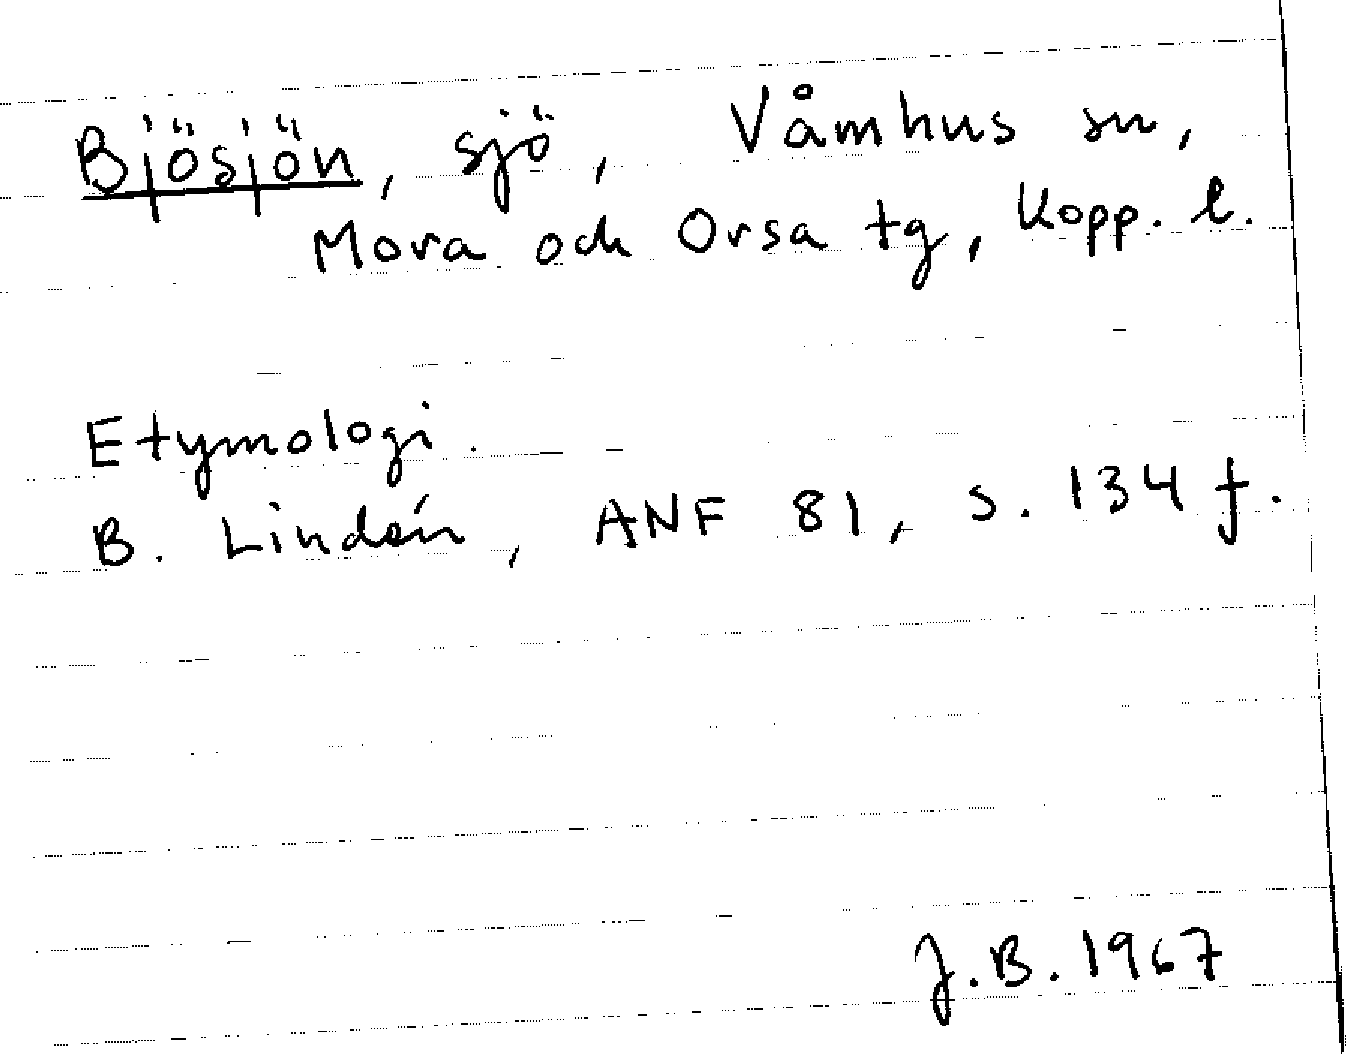 Bjösjön, sjö, Våmhus sn,
Mora och Orsa tg, Kopp. l.
Etymologi.
B. Lindén, ANF 81, s. 134 f.
J.B. 1967